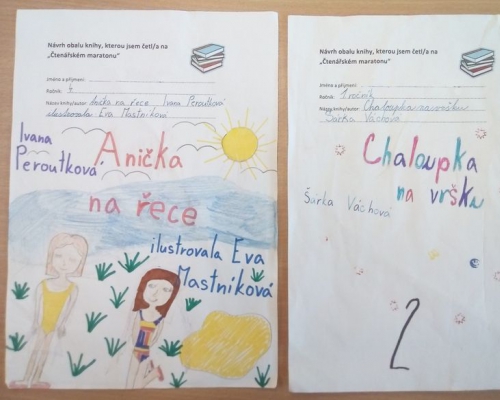 Návrh obalu knihy, kterou jsem četl/a na
„Čtenářském maratonu"
Jméno a příjmení:
Ročník: 4.
Název knihy/autor: Anička na řece Ivana Peroutková
ilustrovala Eva Mastníková
Ivana
Peroutková
Anička
na řece
ilustrovala Eva
Mastníková
Návrh obalu knihy, kterou jsem četl/a na
„Čtenářském maratonu"
Jméno a příjmení:
Ročník: 1. ročník
Název knihy/autor: Chaloupka na vršku
Šárka Váchová
Chaloupka
na vršku
Šárka Váchová
2